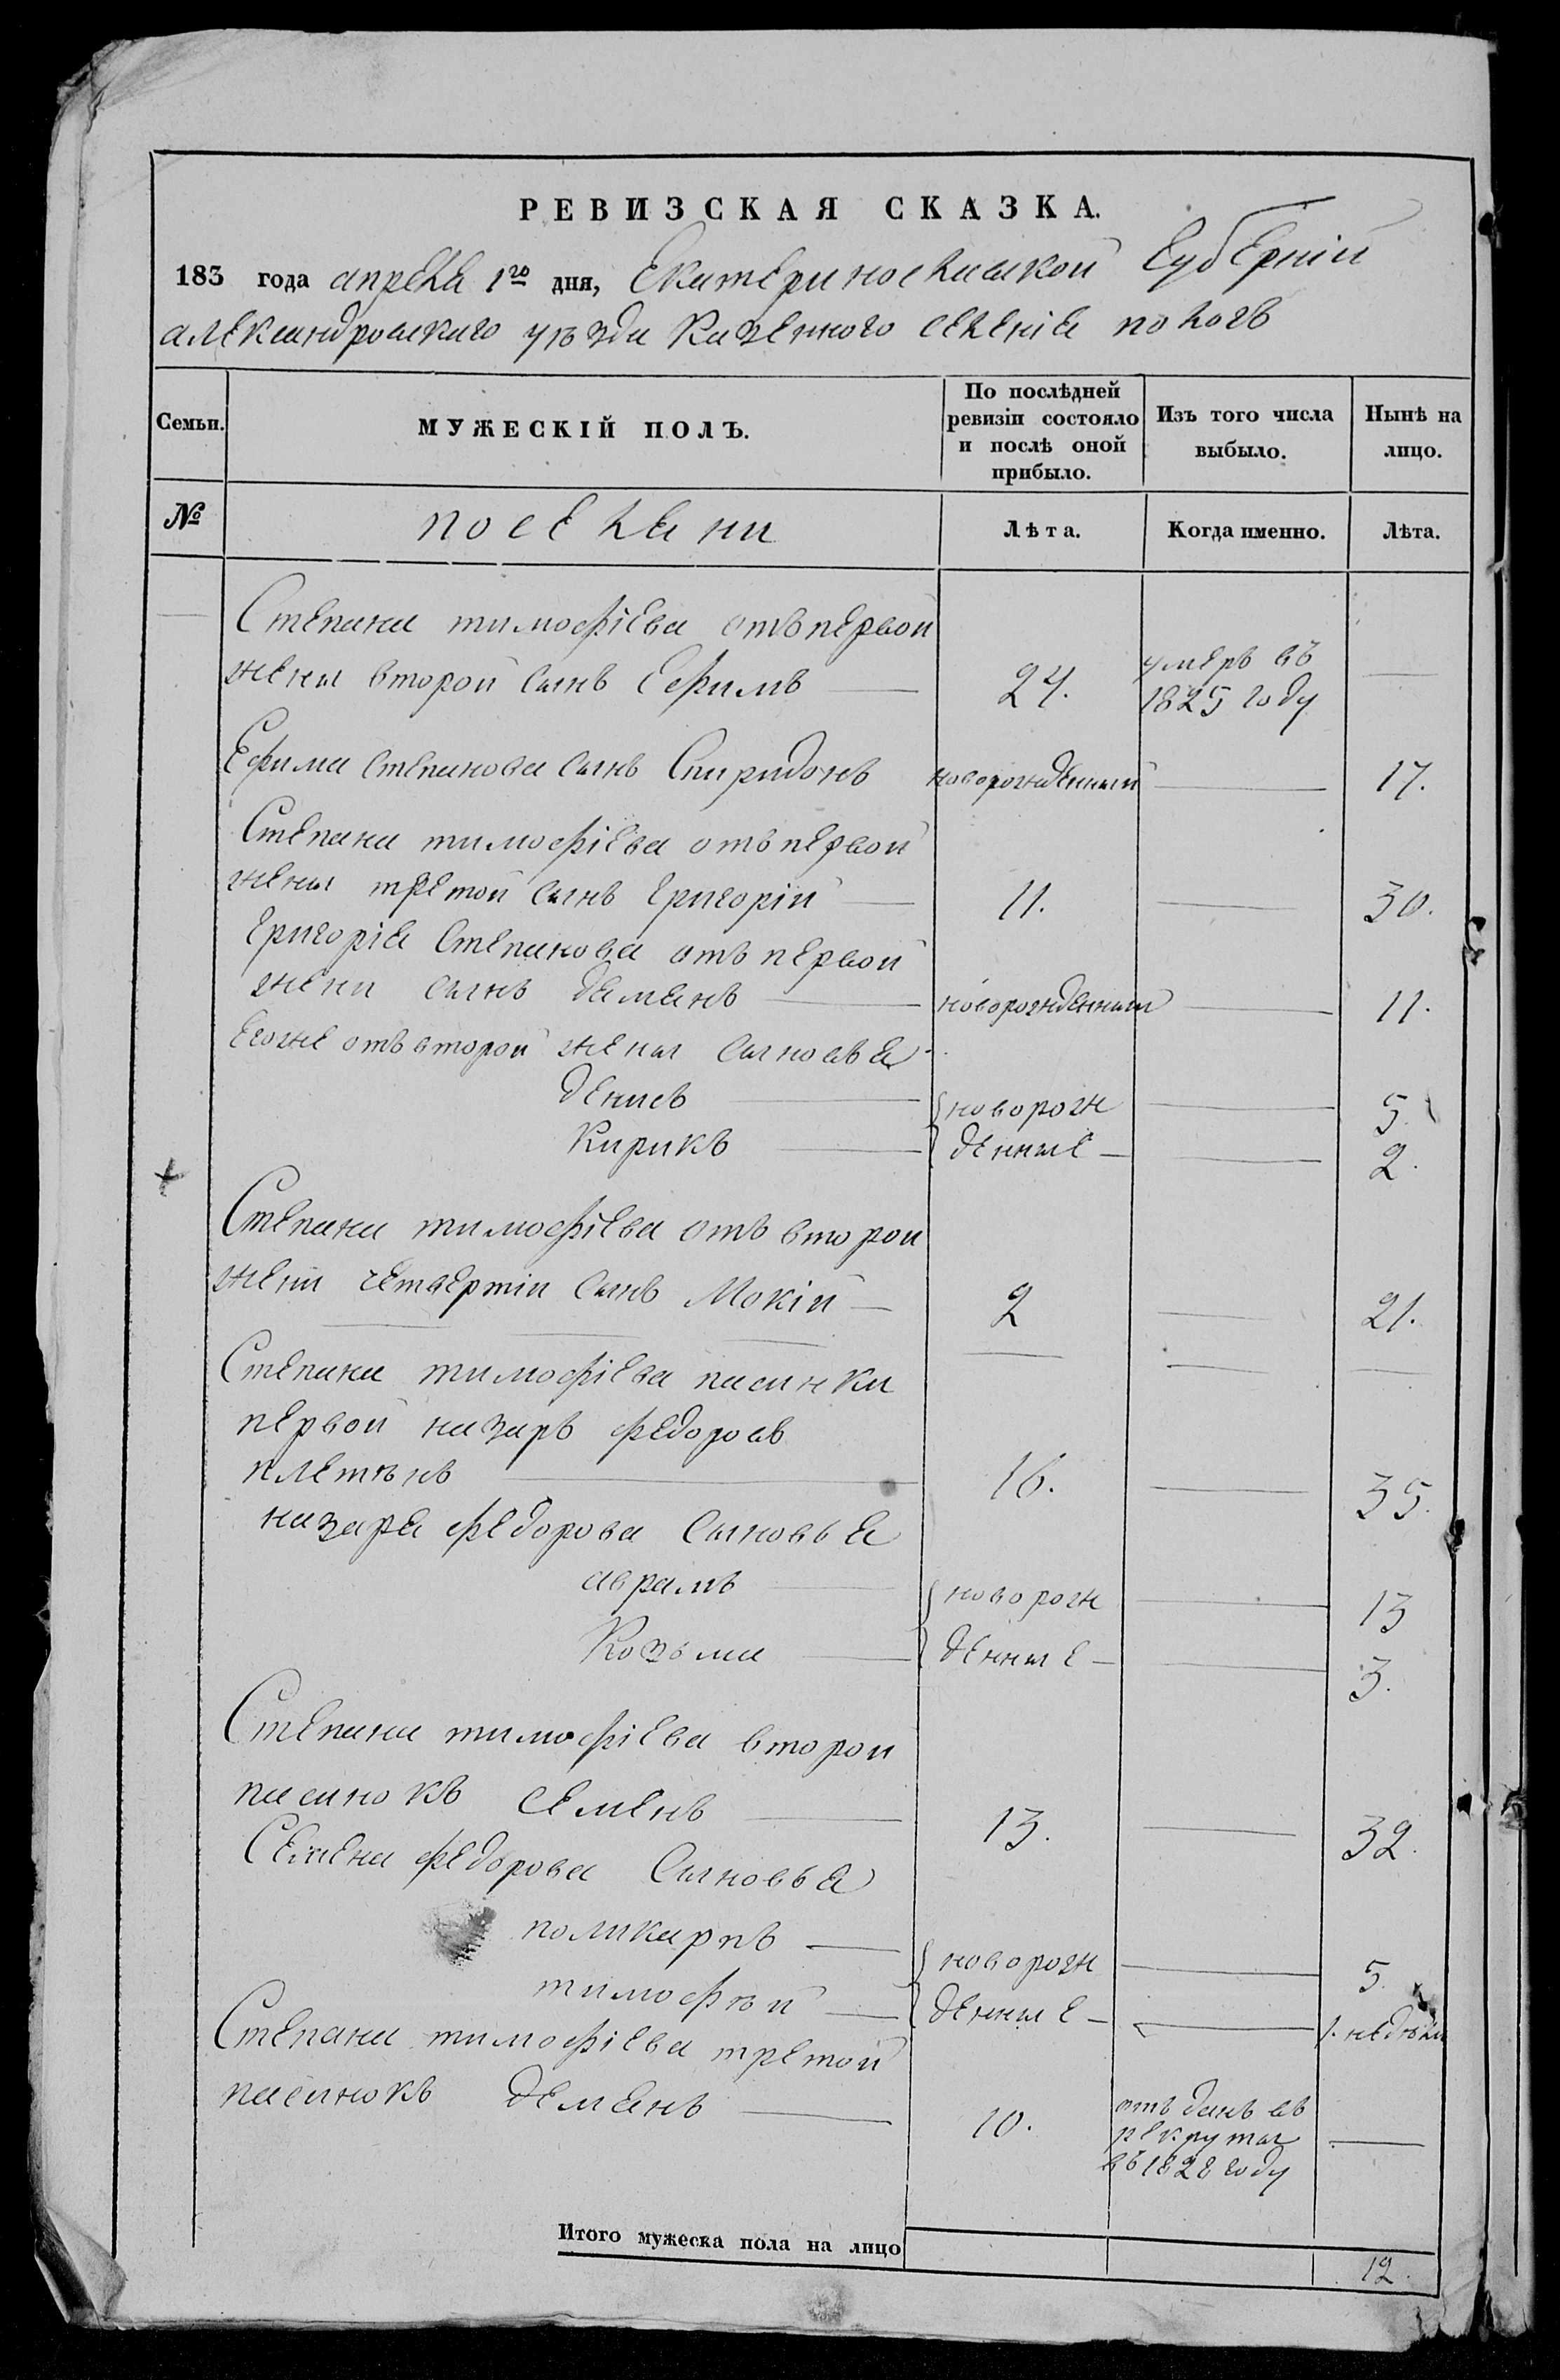 РЕВИЗСКАЯ СКАЗКА.
183 года апреля 1го дня, Екатеринославской Губерніи
александровскаго уѣзда Казенного селенія пологъ
Семьи.
МУЖЕСКІЙ ПОЛЪ.
По послѣдней ревизіи состояло и послѣ оной прибыло.
Изъ того числа выбыло.
Нынѣ на лицо.
№
поселяни
Лѣта.
Когда именно.
Лѣта.
Степана тимофіева отъ первои
жены второй сынъ Ефимъ 24. умеръ въ 1825 году
Ефима Степанова сынъ Спиридонъ новорожденный 17.
Степана тимофіева отъ первой
жены третой сынъ Григорій 11. 30.
Григорія Степанова отъ первой
жени сынъ демянъ новорожденным 11.
Егоже отъ второй жены сыновья
денисъ новорож 5.
Кирикъ денные 2.
Степана тимофіева отъ второи
жени четвертіи сынъ Мокій 2 21.
Степана тимофіева пасинки
первой назаръ федоровъ
плетѣнъ 16. 35.
назаря федорова сыновья
аврамъ новорож 13
Козьма денные 3.
Степана тимофіева второи
пасинокъ семенъ 13. 32.
Семена федорова сыновья
поликарпъ новорож 5.
тимофѣй денные 1. недѣли
Степана тимофіева третой
пасинокъ демянъ 10. отъданъ въ рекруты въ 1828 году
Итого мужеска пола на лицо 12.